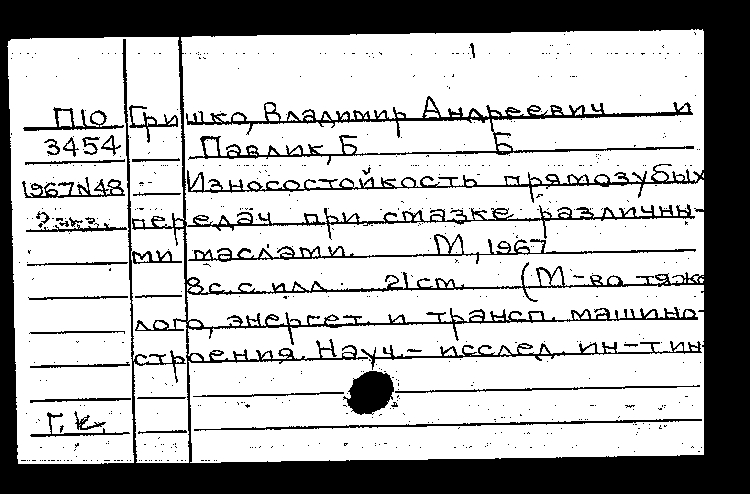 1
П10 Гришко, Владимир Андреевич и
3454 Павлик, Б Б
1967N48 Износостойкость прямозубых
2 экз. передач при смазке различны-
ми маслами. М, 1967
8с. с илл 21 см. (М-во тяже
лого, энергет. и трансп. машино-
строения. Науч.- исслед. ин-т ин
Г. К.